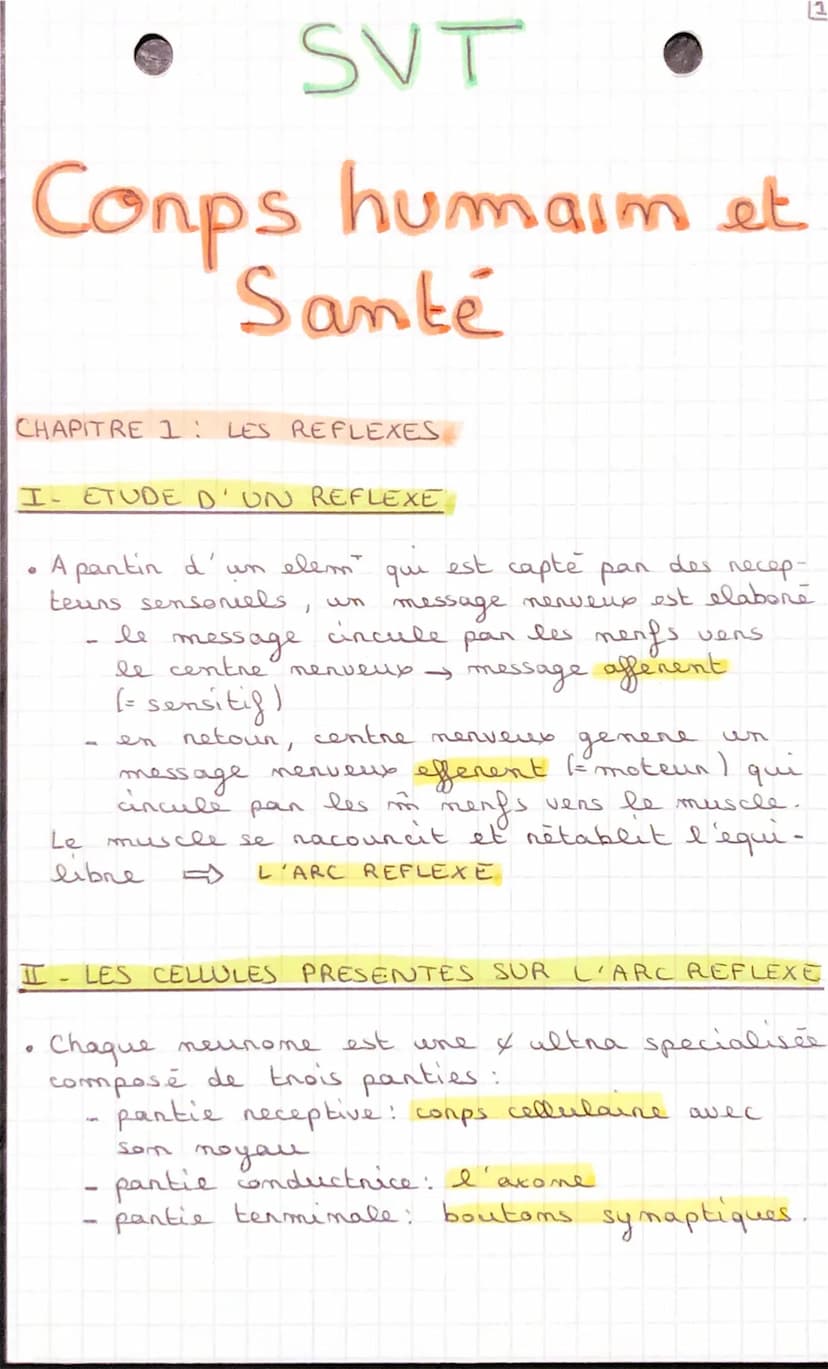 1
SVT
Corps humain et
Santé
CHAPITRE 1 : LES REFLEXES
I - ETUDE D'UN REFLEXE
• A partir d'un elemᵗ qui est capté par des recep-
teurs sensoriels, un message nerveux est elaboré
- le message circule par les nerfs vers
le centre nerveux → message afferent
(= sensitif)
- en retour, centre nerveux genere un
message nerveux efferent (= moteur) qui
circule par les m̂ nerfs vers le muscle.
Le muscle se racourcit et rétablit l'equi-
libre ⇒ L'ARC REFLEXE
II - LES CELLULES PRESENTES SUR L'ARC REFLEXE
• Chaque neurone est une ultra specialisée
composé de trois parties :
- partie receptive : corps cellulaire avec
son noyau
- partie conductrice : l'axone
- partie terminale : boutons synaptiques.